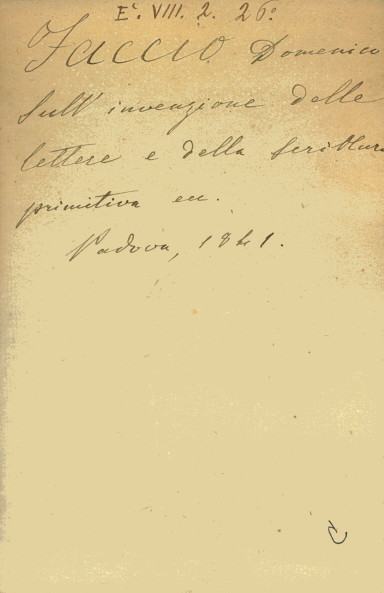 E². VIII. 2. 26º
Faccio Domenico
Sull' invenzione delle
lettere e della scrittura
primitiva ec.
Padova, 1841.
C